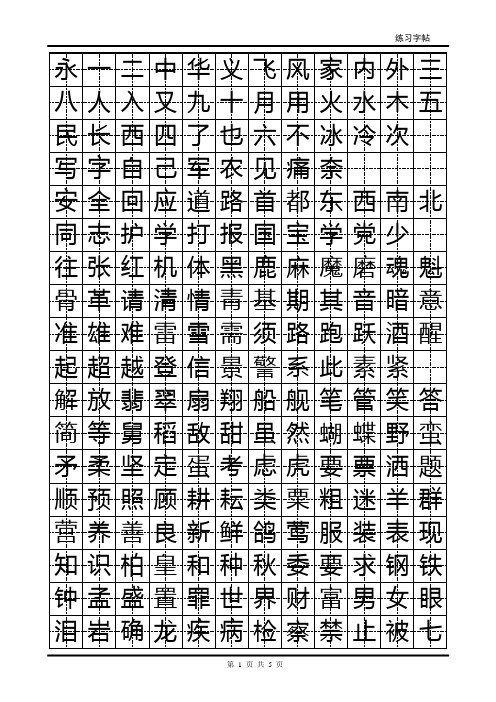 练习字帖
永一二中华义飞风家内外三
八人入又九十月用火水木五
民长西四了也六不冰冷次
写字自己军农见痛奈
安全回应道路首都东西南北
同志护学打报国宝学党少
往张红机体黑鹿麻魔磨魂魁
骨革请清情青基期其音暗意
准雄难雷雪需须路跑跃酒醒
起超越登信景警系此素紧
解放翡翠扇翔船舰笔管笑答
简等舅稻敌甜虽然蝴蝶野蛮
矛柔坚定蛋考虑虎要票洒题
顺预照顾耕耘类粟粗迷羊群
营养善良新鲜鸽莺服装表现
知识柏皇和种秋委要求钢铁
钟孟盛置罪世界财富男女眼
泪岩确龙疾病检察禁止被七
第 1 页 共 5 页